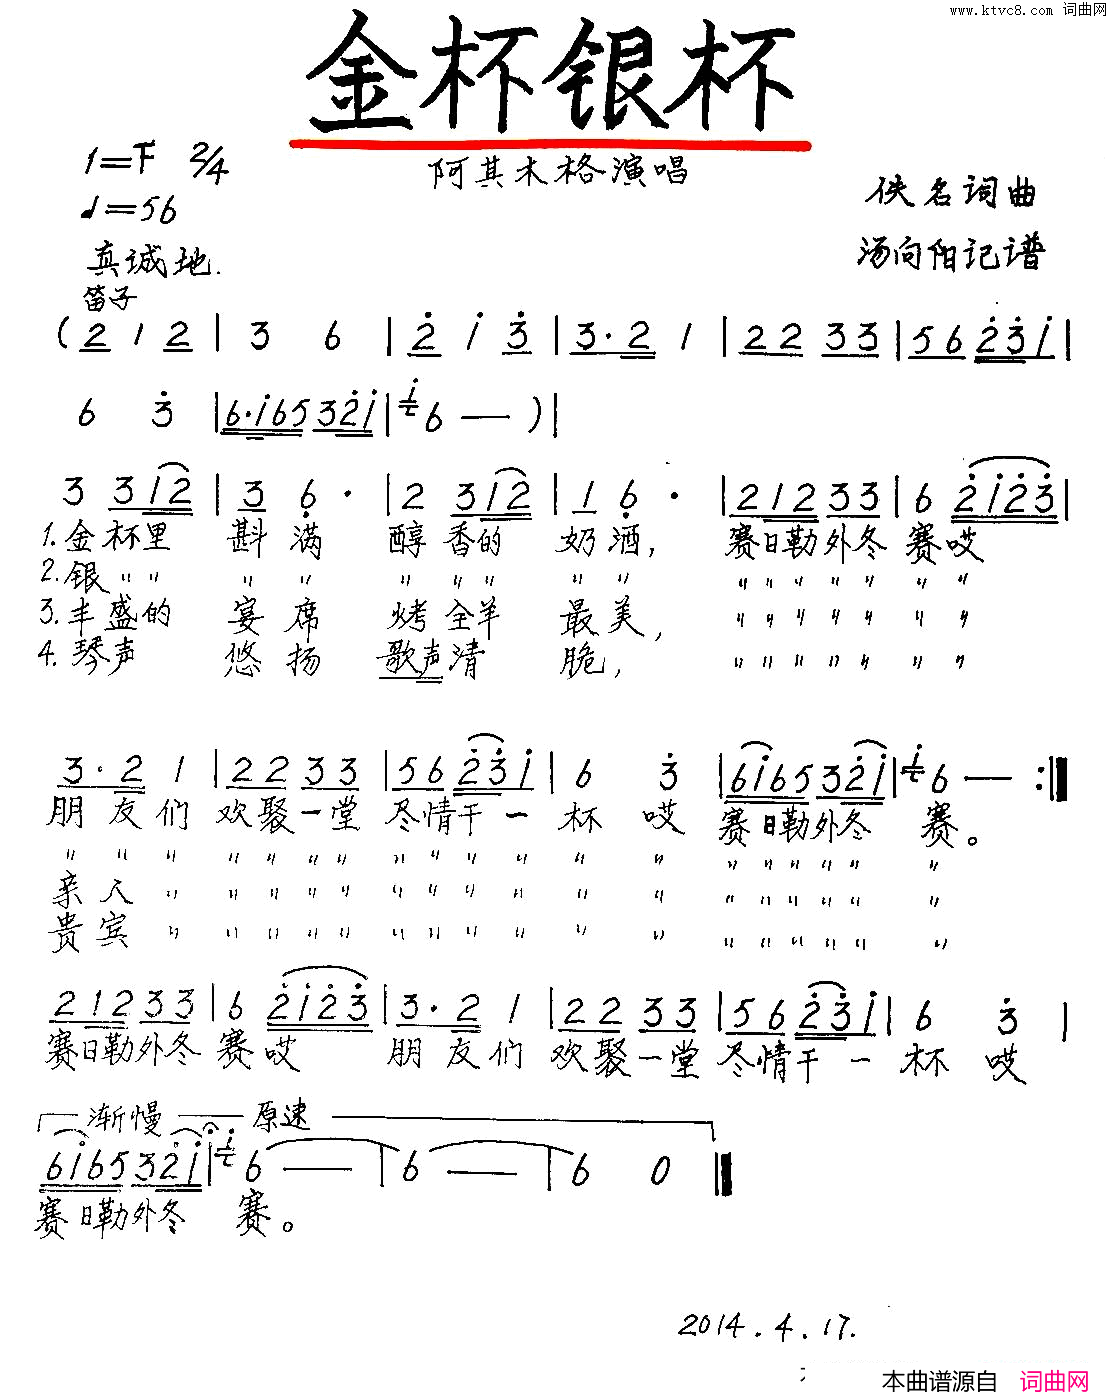 www.ktvc8.com 词曲网
金杯银杯
1=F 2/4
阿其木格演唱
♩=56
佚名词曲
真诚地.
汤向阳记谱
笛子
( 2 1 2 | 3 6 | 2 i 3 | 3·2 1 | 22 33 | 56 23i |
6 3 | 6·i65 32i | i 6 — ) |
3 3 12 | 3 6· | 2 3 12 | 1 6· | 212 33 | 6 2i23 |
1.金杯里 斟满 醇香的 奶酒, 赛日勒外冬 赛哎
2.银〃〃 〃〃 〃〃〃 〃〃 〃〃〃〃〃 〃〃
3.丰盛的 宴席 烤全羊 最美, 〃〃〃〃〃 〃〃
4.琴声 悠扬 歌声清 脆, 〃〃〃〃〃 〃〃
3·2 1 | 22 33 | 56 23i | 6 3 | 6i65 32i | i 6 — :|
朋友们 欢聚一堂 尽情干一 杯哎 赛日勒外冬 赛。
〃〃〃 〃〃〃〃 〃〃〃〃 〃〃 〃〃〃〃〃 〃
亲人〃 〃〃〃〃 〃〃〃〃 〃〃 〃〃〃〃〃 〃
贵宾〃 〃〃〃〃 〃〃〃〃 〃〃 〃〃〃〃〃 〃
212 33 | 6 2i23 | 3·2 1 | 22 33 | 56 23i | 6 3 |
赛日勒外冬 赛哎 朋友们 欢聚一堂 尽情干一 杯哎
渐慢 原速
6i65 32i | i 6 — | 6 — | 6 0 ‖
赛日勒外冬 赛。
2014.4.17.
本曲谱源自 词曲网